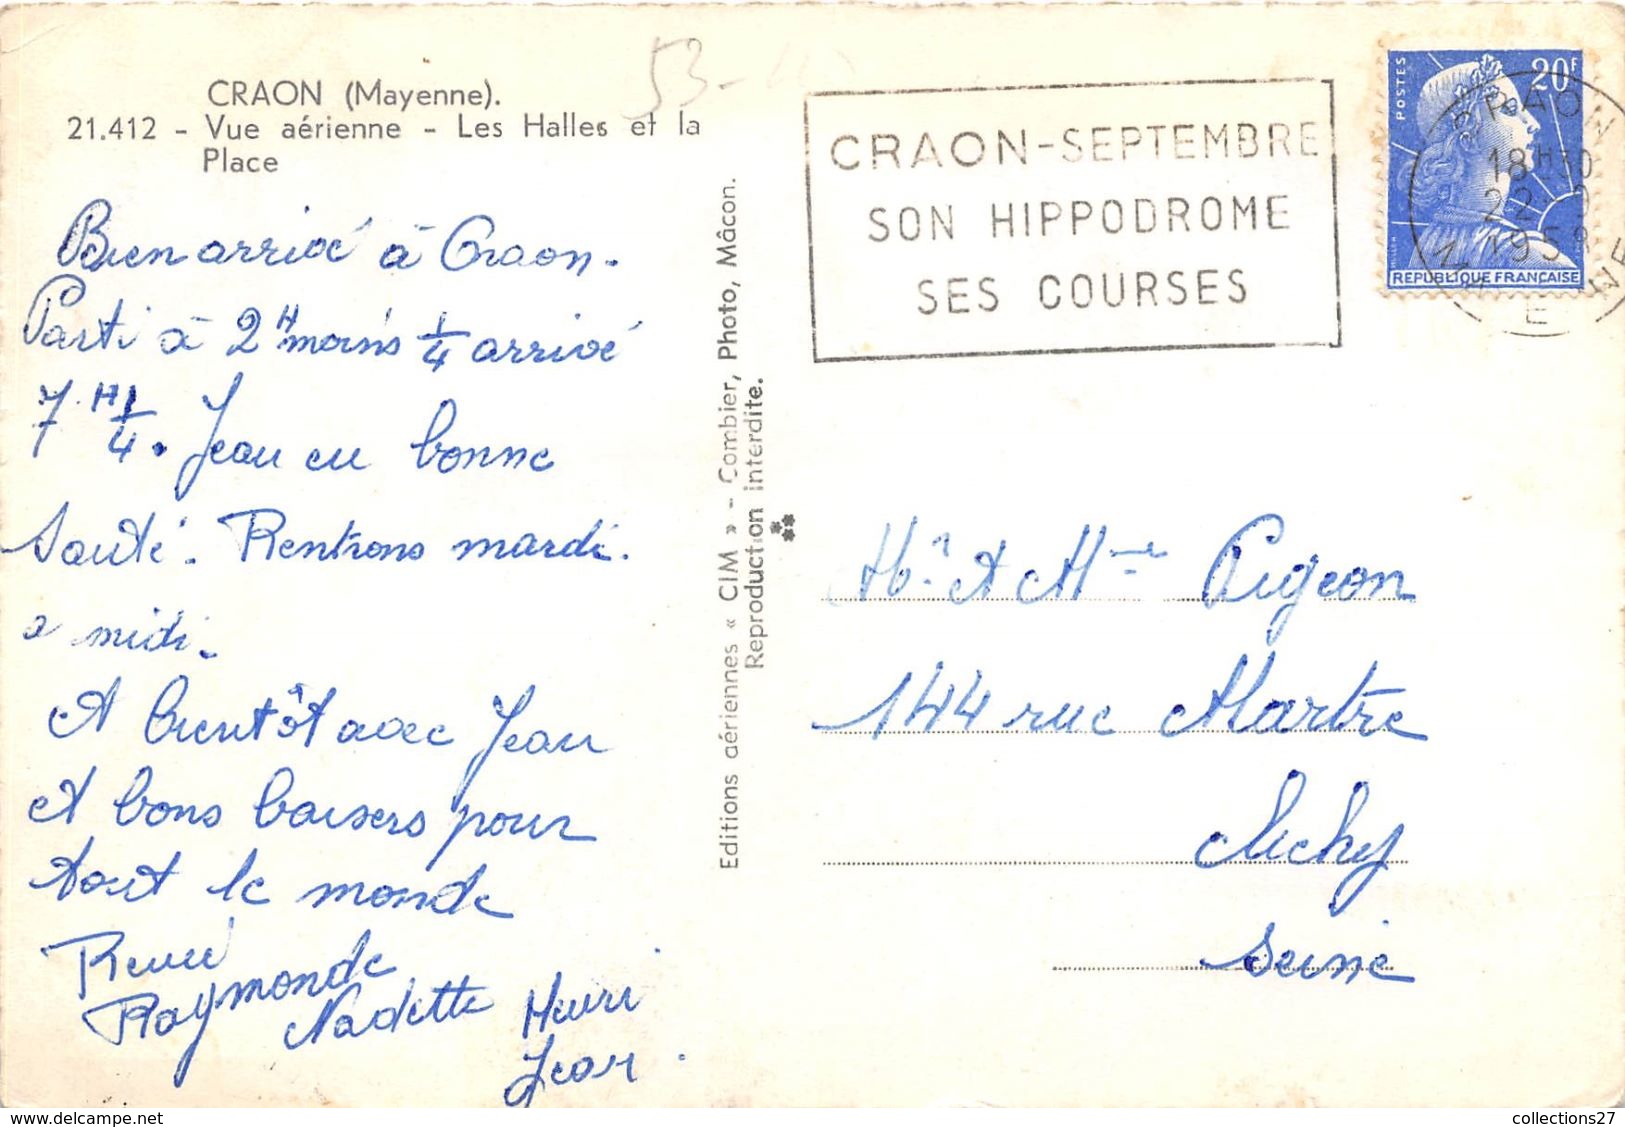 CRAON (Mayenne).
21.412 - Vue aérienne - Les Halles et la
Place
53-
Bien arrivé à Craon.
Parti à 2H moins 1/4 arrivé
7H 1/4. Jean en bonne
santé. Rentrons mardi.
a midi.
A bientôt avec Jean
et bons baisers pour
tout le monde
René
Raymonde
Nadette Henri
Jean.
Editions aériennes « CIM » - Combier, Photo, Mâcon.
Reproduction interdite.
CRAON-SEPTEMBRE
SON HIPPODROME
SES COURSES
POSTES
20F
REPUBLIQUE FRANÇAISE
CRAON
18H30
22-9
1958
MAYENNE
Mr et Mme Pigeon
144 rue Martre
Clichy
Seine
collections27